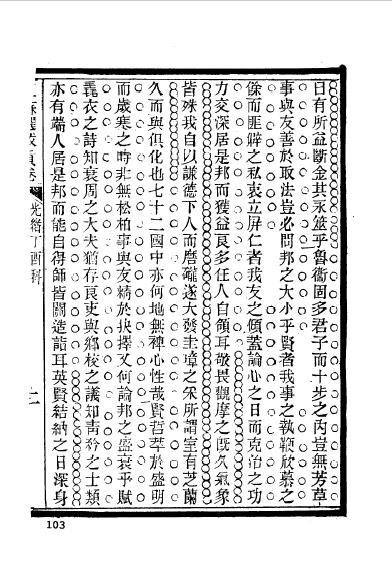 日有所益斷金其永筮乎魯衞固多君子而十步之內豈無芳草
事與友善於取法豈必問邦之大小乎賢者我事之執鞭欣慕之
餘而匪僻之私衷立屏仁者我友之傾蓋論心之日而克治之功
力交深居是邦而獲益良多任人自領耳敬畏觀摩之旣久氣象
皆殊我自以謙德下人而磨礲遂大發圭璋之采所謂室有芝蘭
久而與俱化也七十二國中亦何地無裨心性哉賢哲萃於盛明
而歲寒之時非無松柏事與友精於抉擇又何論邦之盛衰乎賦
毳衣之詩知衰周之大夫猶存良吏與鄉校之議知靑衿之士類
亦有端人居是邦而能自得師皆關造詣耳英賢結納之日深身
光緒丁酉科
103